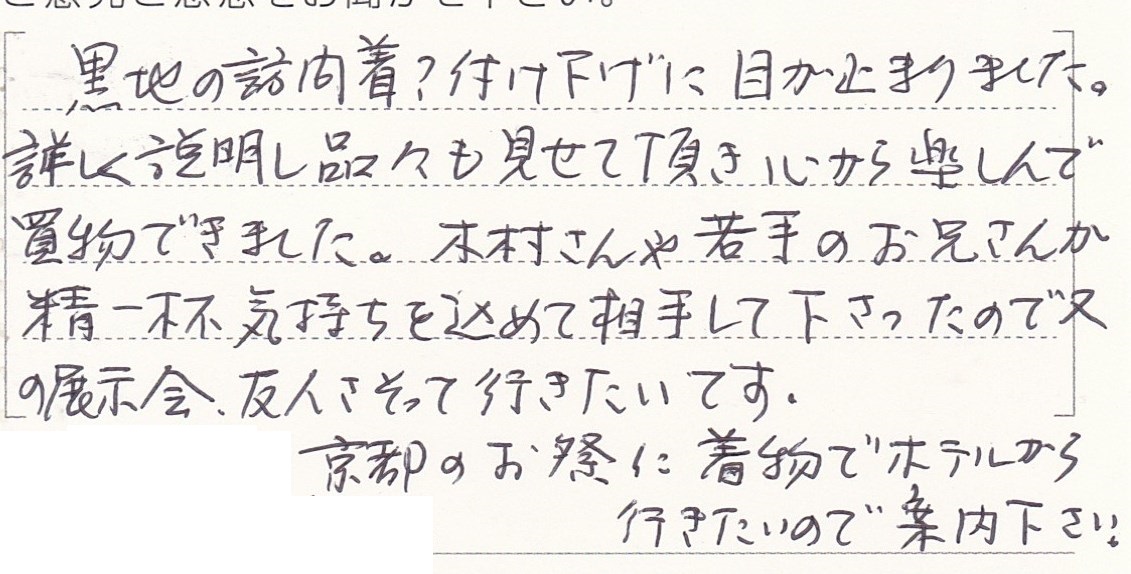 ご意見ご感想をお聞かせ下さい。
黒地の訪問着?付け下げに目が止まりました。
詳しく説明し品々も見せて頂き心から楽しんで
買物できました。木村さんや若手のお兄さんが
精一杯気持ちを込めて相手して下さったので又
の展示会、友人さそって行きたいてす.
京都のお祭に着物でホテルから
行きたいので案内下さい!